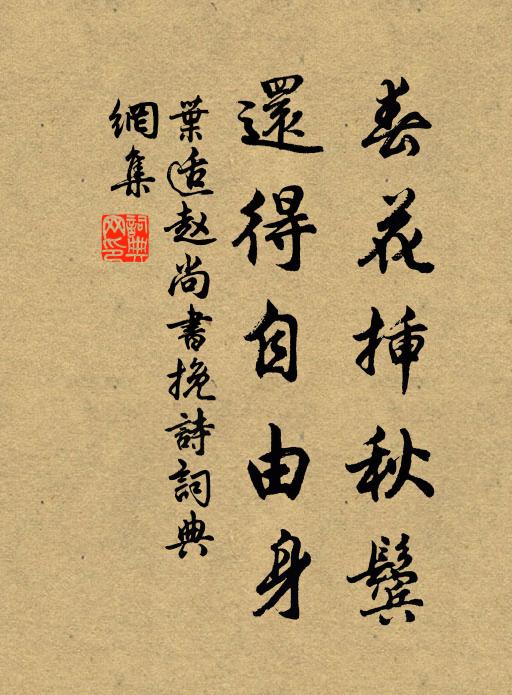 春花插秋鬢
還得自由身
葉适赵尚書挽詩詞典
網集
詞典網印